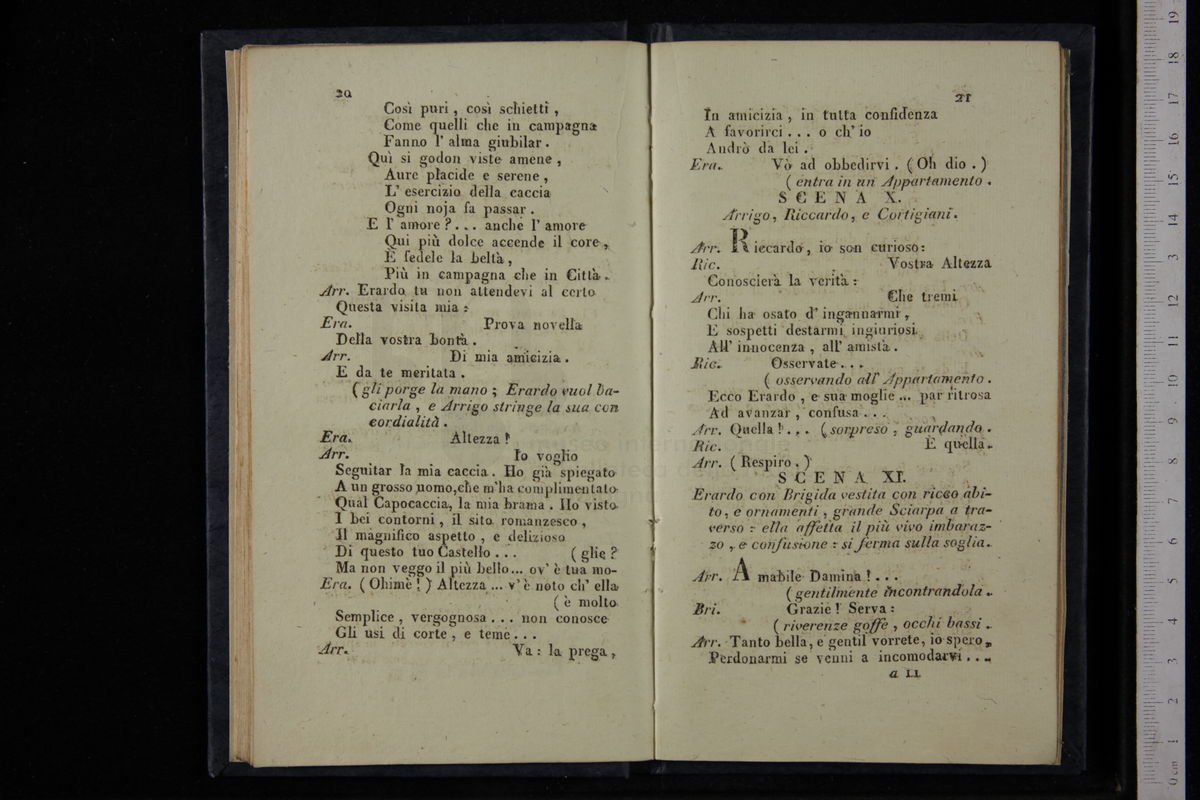 20
Così puri , così schietti ,
Come quelli che in campagna
Fanno l' alma giubilar .
Quì si godon viste amene ,
Aure placide e serene ,
L' esercizio della caccia
Ogni noja fa passar .
E l' amore ? . . . anche l' amore
Qui più dolce accende il core ,
È fedele la beltà ,
Più in campagna che in Città .
Arr. Erardo tu non attendevi al certo
Questa visita mia :
Era. Prova novella
Della vostra bontà .
Arr. Di mia amicizia .
E da te meritata .
( gli porge la mano ; Erardo vuol ba-
ciarla , e Arrigo stringe la sua con
cordialità .
Era. Altezza !
Arr. Io voglio
Seguitar la mia caccia . Ho già spiegato
A un grosso uomo,che m'ha complimentato
Qual Capocaccia, la mia brama . Ho visto
I bei contorni , il sito romanzesco ,
Il magnifico aspetto , e delizioso
Di questo tuo Castello . . . ( glie ?
Ma non veggo il più bello... ov' è tua mo-
Era. ( Ohimè ! ) Altezza ... v' è noto ch' ella
( è molto
Semplice , vergognosa . . . non conosce
Gli usi di corte , e teme . . .
Arr. Va : la prega ,
21
In amicizia , in tutta confidenza
A favorirci . . . o ch' io
Andrò da lei .
Era. Vò ad obbedirvi . ( Oh dio . )
( entra in un Appartamento .
SCENA X.
Arrigo, Riccardo, e Cortigiani.
Arr. Riccardo, io son curioso:
Ric. Vostra Altezza
Conoscierà la verità :
Arr. Che tremi
Chi ha osato d' ingannarmi ,
E sospetti destarmi ingiuriosi
All' innocenza , all' amistà .
Ric. Osservate . . .
( osservando all' Appartamento .
Ecco Erardo , e sua moglie ... par ritrosa
Ad avanzar , confusa . . .
Arr. Quella ! . . . ( sorpreso , guardando .
Ric. È quella.
Arr. ( Respiro . )
SCENA XI.
Erardo con Brigida vestita con ricco abi-
to, e ornamenti , grande Sciarpa a tra-
verso : ella affetta il più vivo imbaraz-
zo , e confusione : si ferma sulla soglia.
Arr. Amabile Damina ! . . .
( gentilmente incontrandola .
Bri. Grazie ! Serva :
( riverenze goffe , occhi bassi .
Arr. Tanto bella, e gentil vorrete, io spero,
Perdonarmi se venni a incomodarvi . . .
a 11